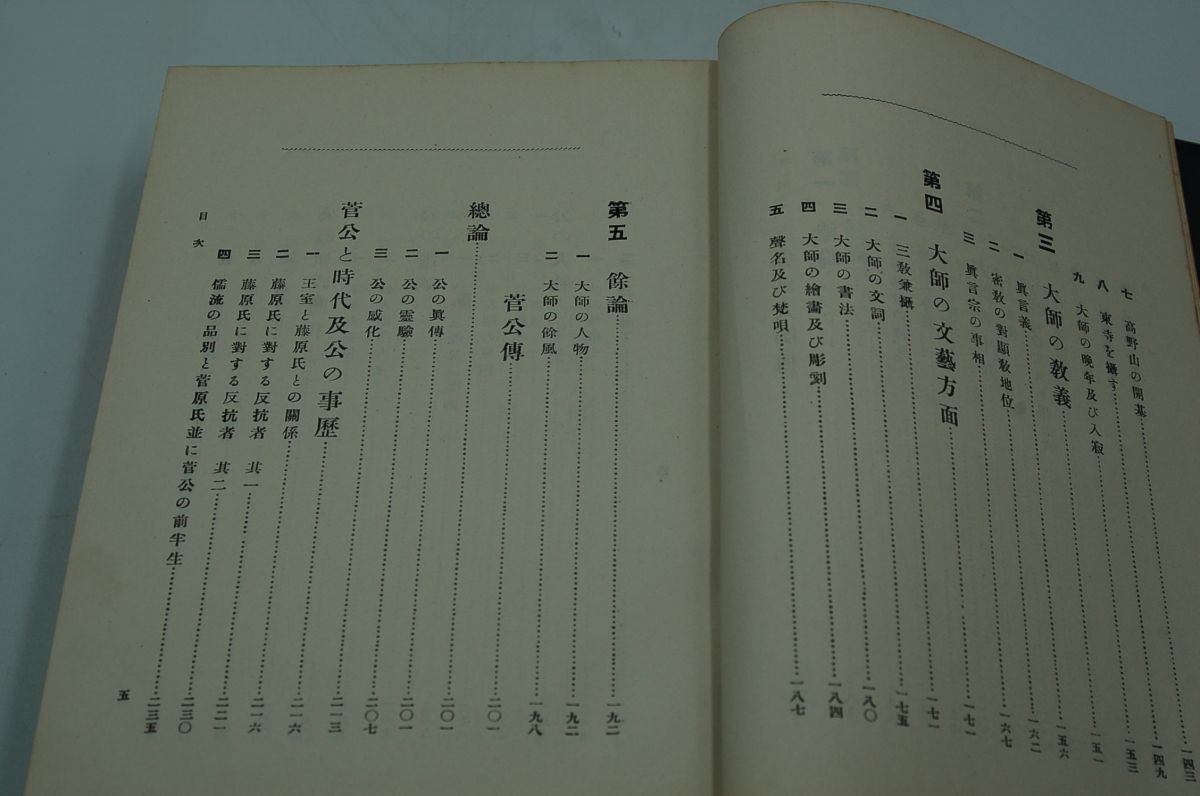 七 高野山の開基 一四三
八 東寺を攝す 一四九
九 大師の晩年及び入寂 一五三
第三 大師の敎義 一五一
一 眞言義 一五六
二 密敎の對顯敎地位 一六二
三 眞言宗の事相 一六七
第四 大師の文藝方面 一七一
一 三敎兼攝 一七一
二 大師の文詞 一七五
三 大師の書法 一八〇
四 大師の繪畫及び彫刻 一八四
五 聲名及び梵唄 一八七
第五 餘論 一九二
一 大師の人物 一九二
二 大師の餘風 一九八
菅公傳 二〇一
總論 二〇一
一 公の眞傳 二〇一
二 公の靈驗 二〇七
三 公の感化 二一三
菅公と時代及公の事歷 二一六
一 王室と藤原氏との關係 二一六
二 藤原氏に對する反抗者 其一 二二一
三 藤原氏に對する反抗者 其二 二三〇
四 儒流の品別と菅原氏並に菅公の前半生 二三五
目次
五